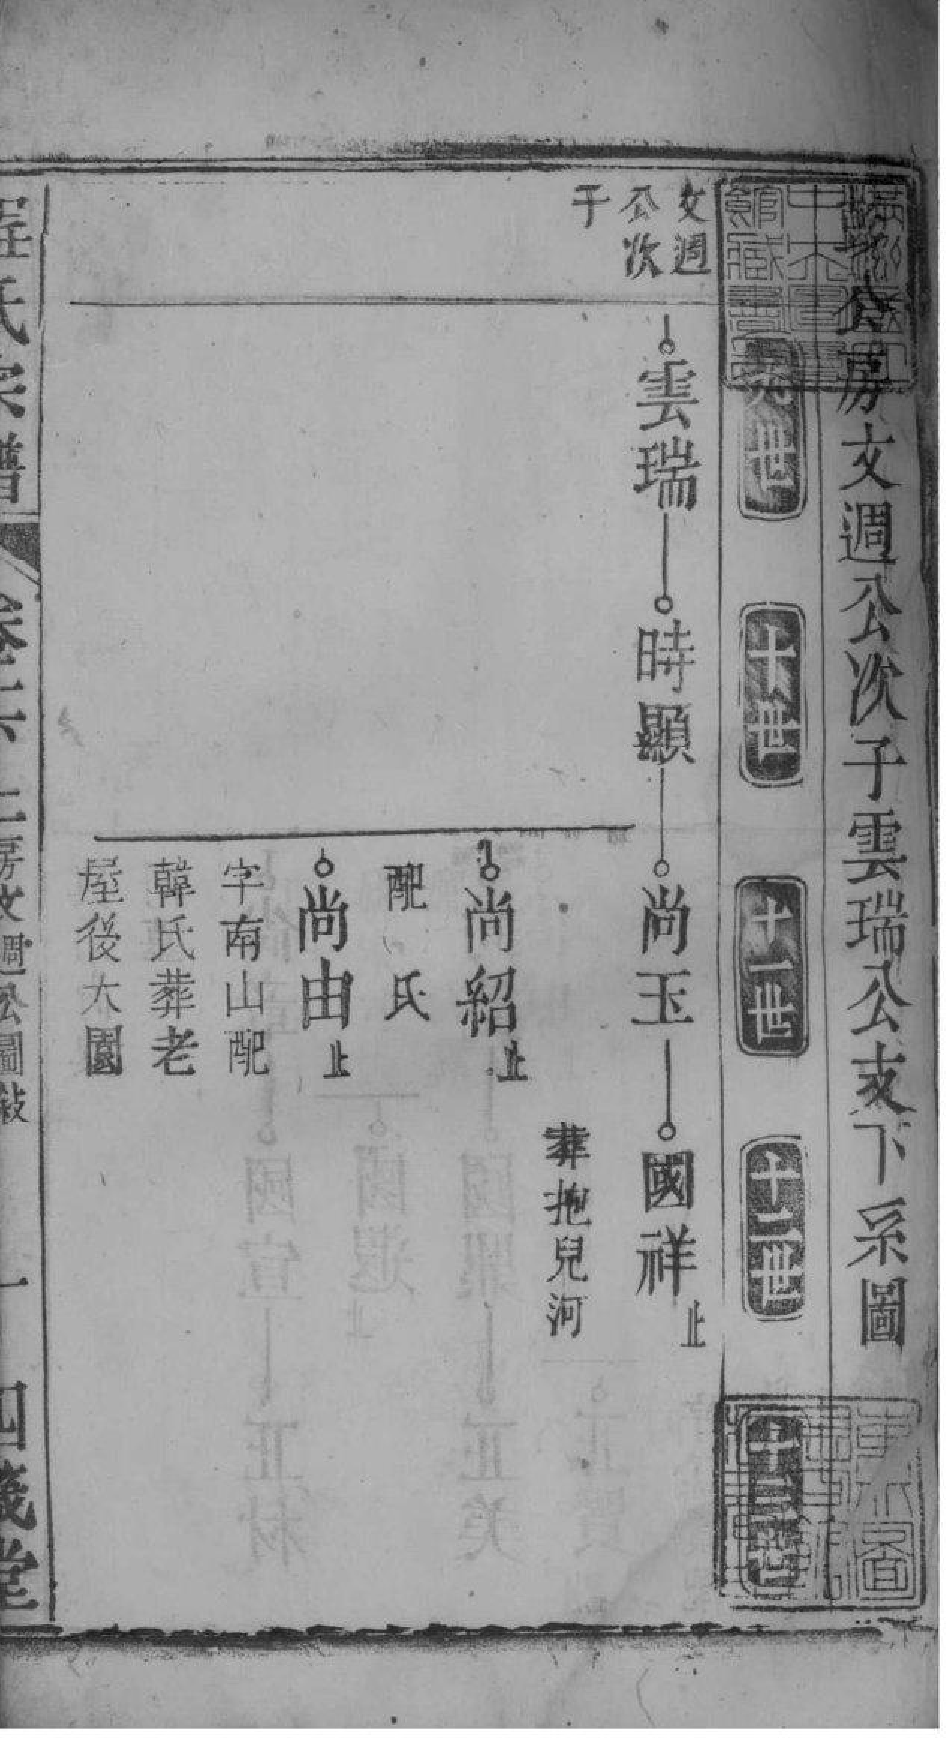 公房文週公次子雲瑞公支下系圖
九世
十世
十一世
十二世
十三世
文週
公次
子
雲瑞
時顯
尚玉
國祥止
葬抱兒河
尚紹止
配 氏
尚由止
字南山配
韓氏葬老
屋後大園
程氏宗譜
卷
房文週公圖
一
四
堂